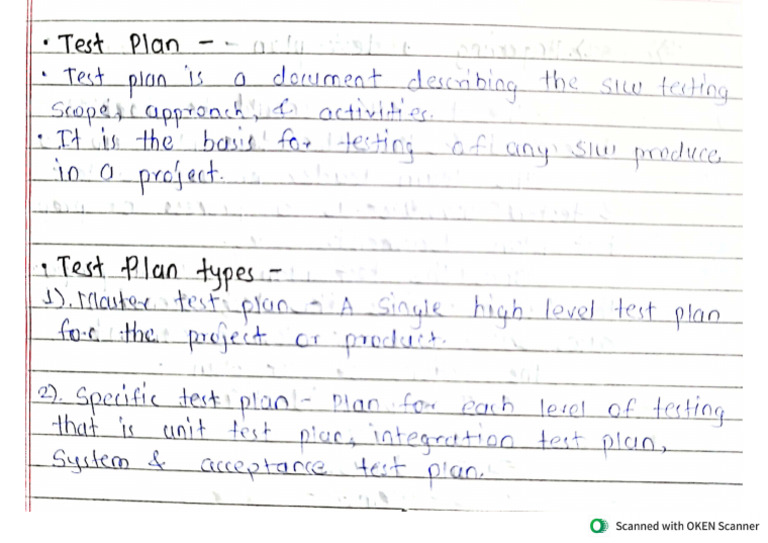 · Test Plan -
· Test plan is a document describing the s/w testing
scope, approach, & activities.
· It is the basis for testing of any s/w produce
in a project.
· Test Plan types -
1). Master test plan - A single high level test plan
for the project or product.
2). Specific test plan - plan for each level of testing
that is unit test plan, integration test plan,
System & acceptance test plan.
Scanned with OKEN Scanner